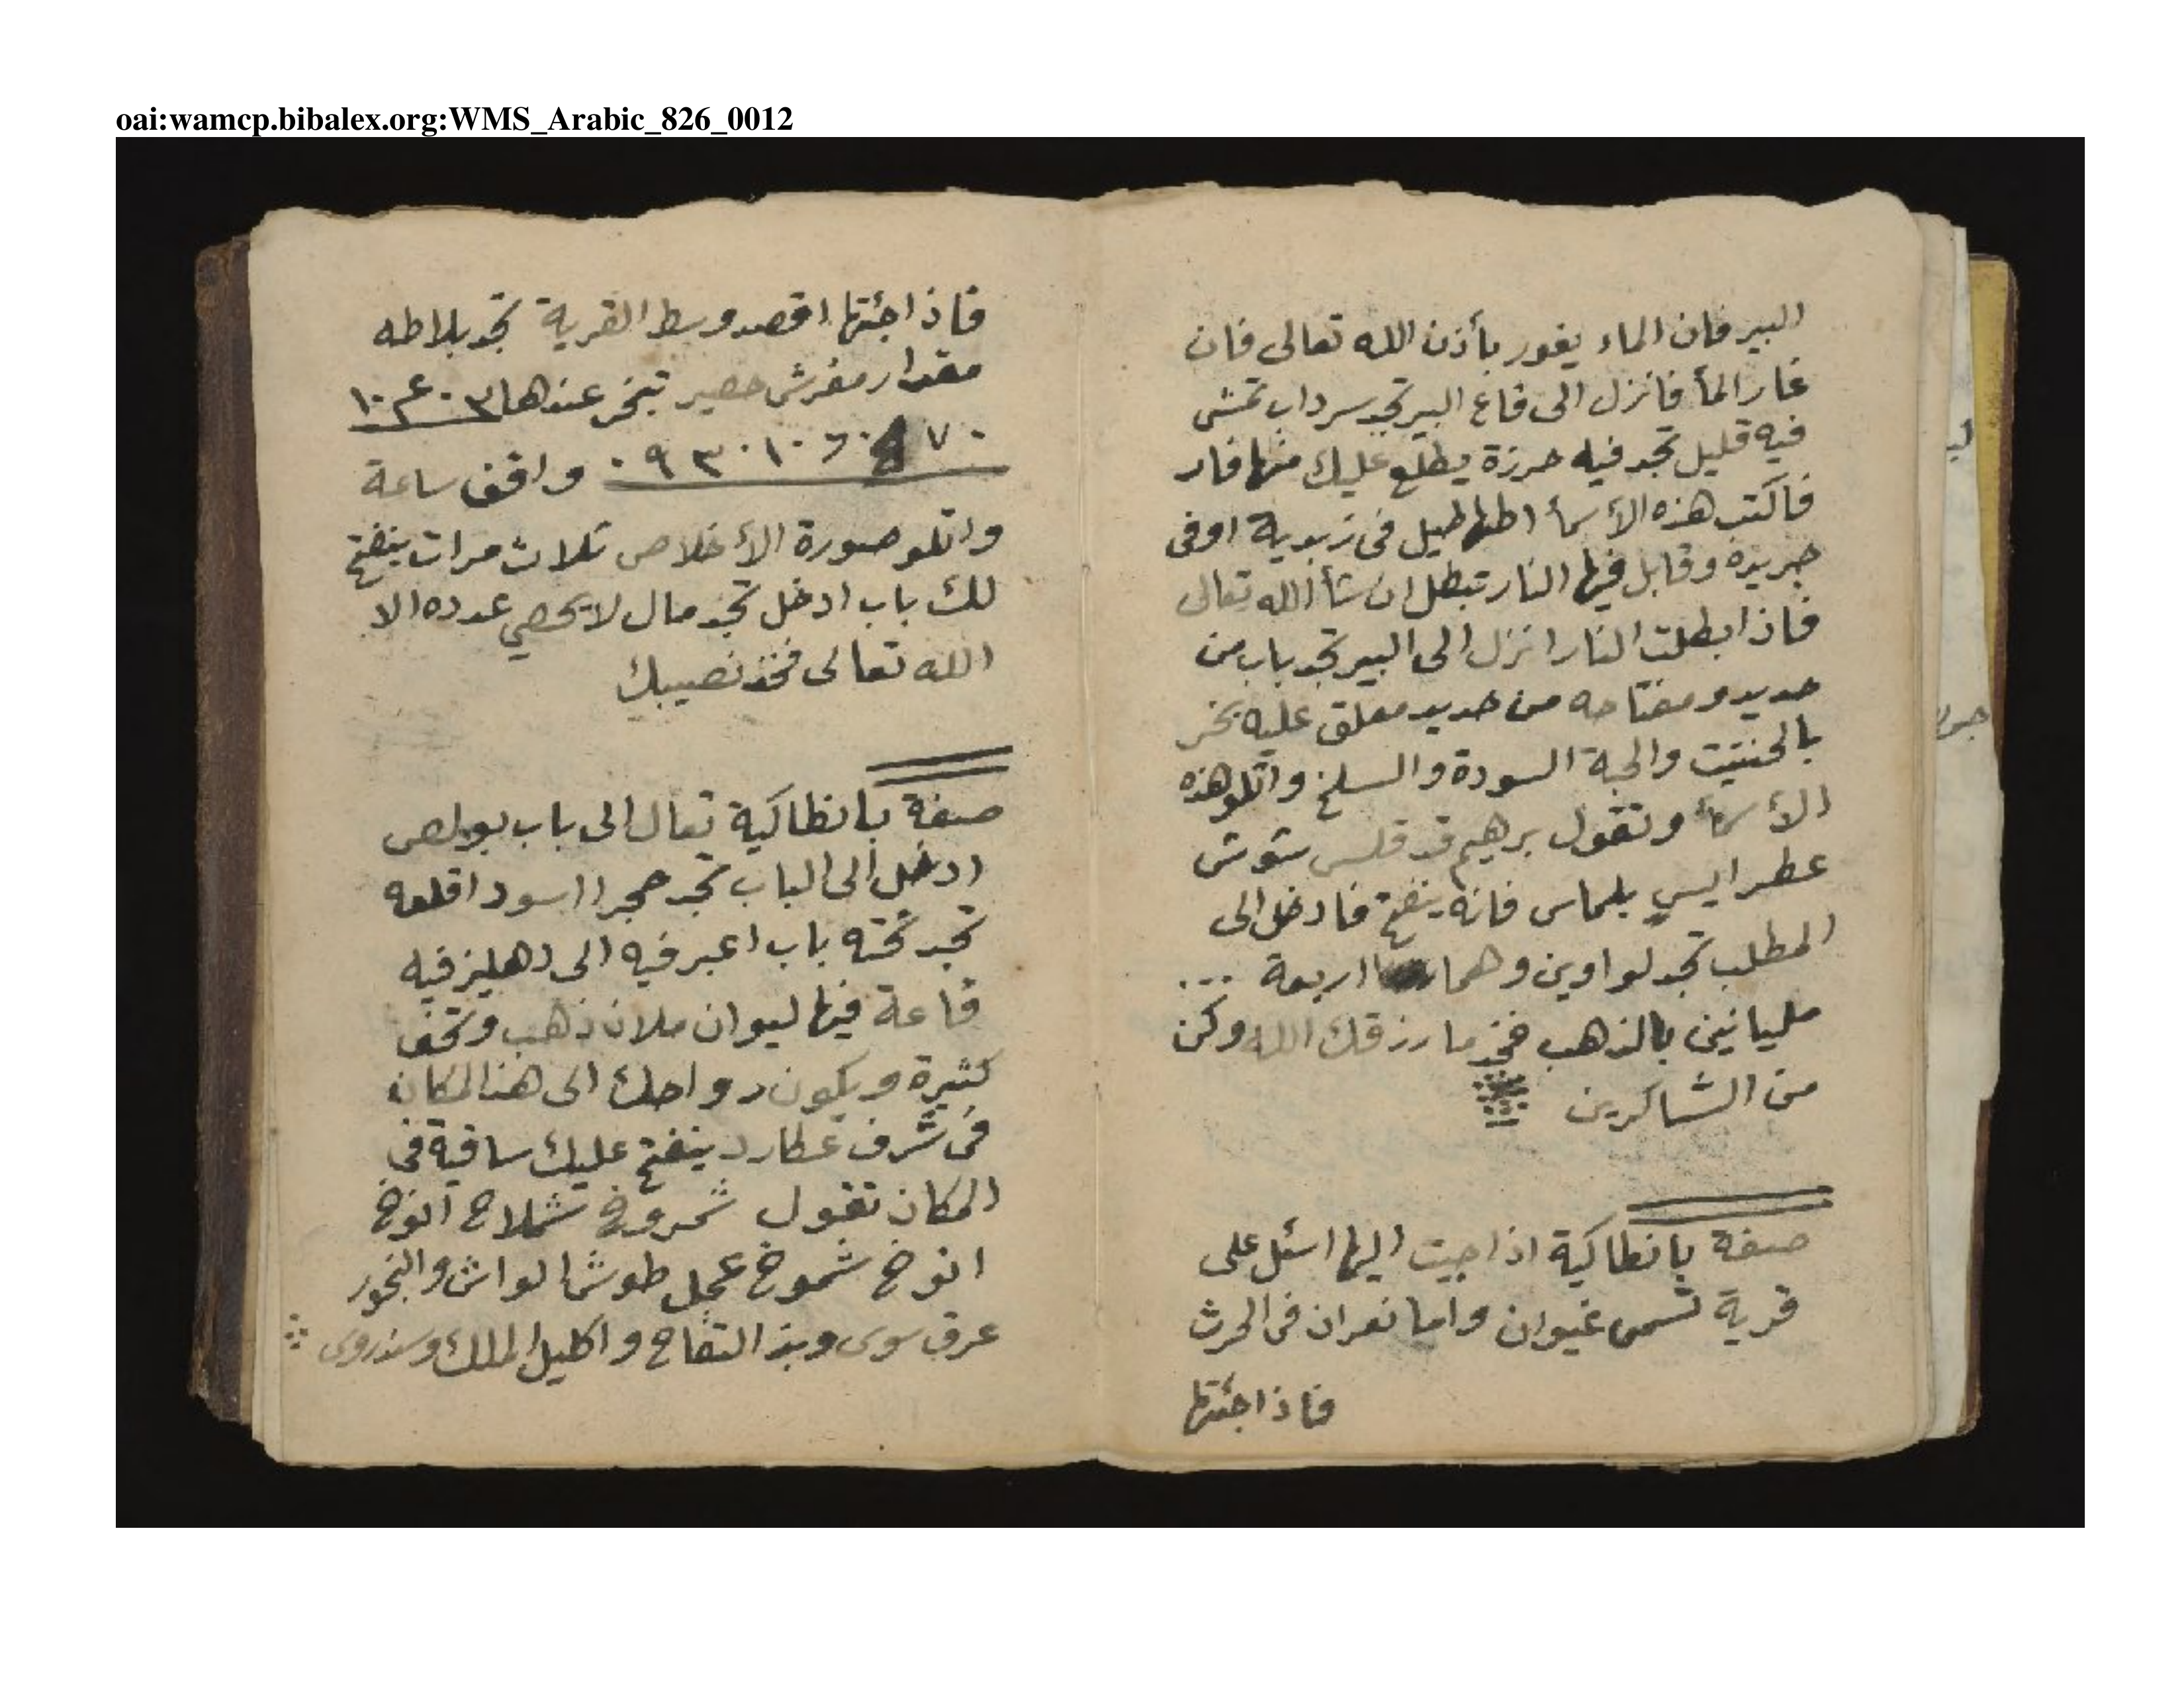 oai:wamcp.bibalex.org:WMS_Arabic_826_0012
البير فان الماء يغور بأذن الله تعالى فان
غار المأ فانزل الى قاع البير تجد سرداب تمشى
فيه قليل تجد فيه خرزة يطلع عليك منها فار
فاكتب هذه الأسمأ اطهاطيل فى زبدية اوفى
جريدة وقابل فيها النار تبطل ان شأ الله تعالى
فاذا بطلت النار انزل الى البير تجد باب من
حديد ومفتاحه من حديد معلق عليه بخر
بالحنتيت والحبة السودة والسلخ واتلو هذه
الأسمأ وتقول برهيم قد قلس شوش
عطر اليس يلماس فانه ينفتح فادخل الى
المطلب تجد لواوين وهما اربعة ...
مليانين بالذهب فخذ ما رزقك الله وكن
من الشاكرين
صفة بانطاكية اذا جيت اليها اسئل على
قرية تسمى غيوان واما نعران فى الحرث
فاذا جئتها
فاذا جئتها اقصد وسط القرية تجد بلاطه
مقدار مفرش حصير تبخر عندها
واقف ساعة
واتلو صورة الأخلاص ثلاث مرات ينفتح
لك باب ادخل تجد مال لا يحصي عدده الا
الله تعالى فخذ نصيبك
صفة بانطاكية تعال الى باب بولص
ادخل الى الباب تجد حجرا اسود اقلعه
تجد تحته باب اعبر فيه الى دهليز فيه
قاعة فيها ليوان ملان ذهب وتحف
كثيرة ويكون رواحك الى هذا المكان
فى شرف عطارد ينفتح عليك ساقية فى
المكان تقول شمروخ شملاخ انوخ
انوخ شموخ عجل طوشا لواش والبخور
عرق سوى وبذ التفاح واكليل الملك وسندروى